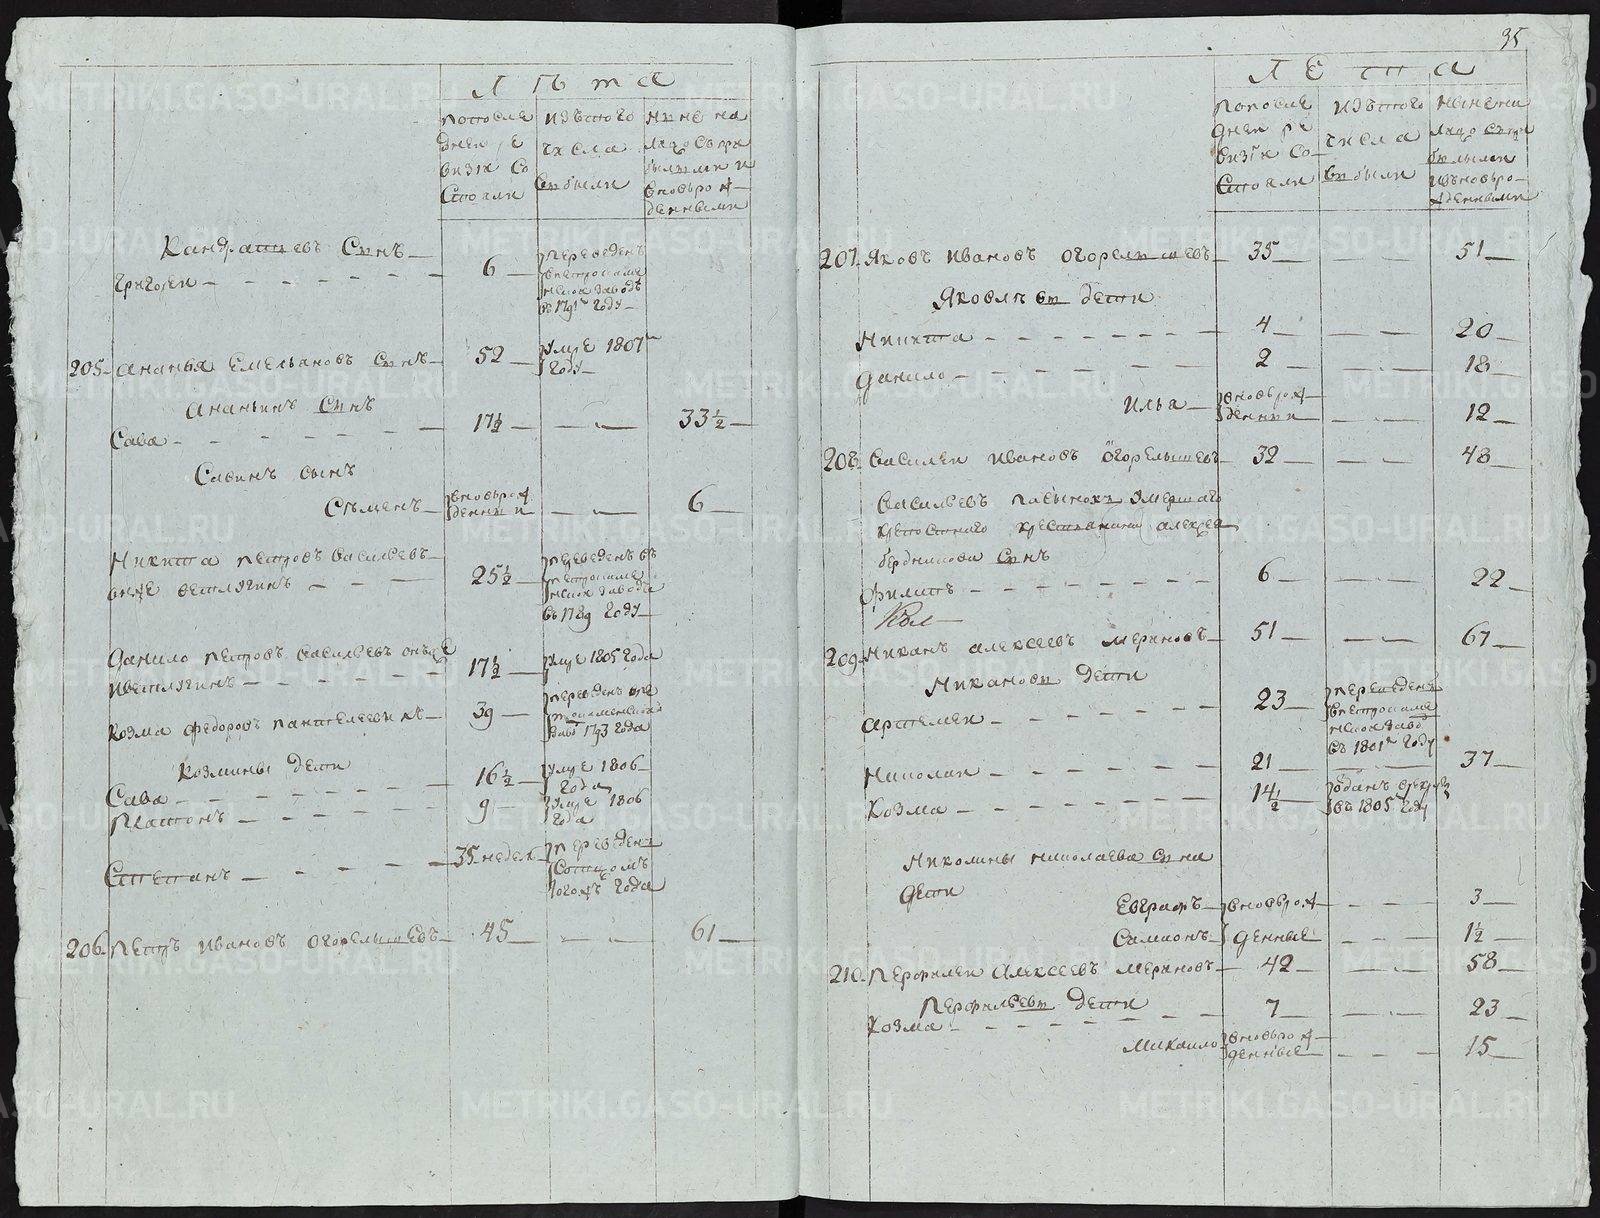 Лѣта
попосле
дней ре
визiи со
стояли
изътого
числа
выбыли
нынѣ на
лицо съпри
былыми и
вновьрож
денными
Кандратьевъ Сынъ
Григореи 6 переведенъ
въ 1791 году
205 Ананья Емельяновъ Сынъ 52 умре 1801
году
Ананьинъ Сынъ
Сава 17½ 33½
Савинъ сынъ
Семенъ вновьрож
денныи 6
Никита Петровъ Васильевъ
онже ветлягинъ 25½ переведенъ въ
завода
въ 1789 году
Данило Петровъ Васильевъ онъже
иветлягинъ 17½ умре 1805 года
Козма Федоровъ Пантелеевихъ 39 переведенъ
1793 года
Козмины дети
Сава 16½ умре 1806
года
Платонъ 9 умре 1806
года
Степанъ 35 недель переведенъ
сотцомъ
тогожъ года
206 Петръ Ивановъ Огорелышевъ 45 61
35
Лета
попосле
дней ре
визiи со
стояли
изътого
числа
выбыли
ныне на
лицо съпри
былыми
ивновьро
жденными
207 Яковъ Ивановъ Огорелышевъ 35 51
Яковлевы дети
Никита 4 20
Данило 2 18
Илья вновьрож
денныи 12
208 Василеи Ивановъ Огорелышевъ 32 48
Васильевъ пасынокъ умершаго
крестьянина Алексея
бердникова Сынъ
Филипъ 6 22
209 Никанъ Алексеевъ Мериновъ 51 67
Никановы дети
Артемеи 23 переведенъ
въ 1801 году
Николаи 21 37
Козма 14½ отданъ врекруты
въ 1805 году
Николины николаева сына
дети
Евграфъ вновьрож 3
Самсонъ денные 1½
210 Перфилеи Алексеевъ Мериновъ 42 58
Перфильевы дети
Козма 7 23
Михаило вновьрож
денные 15
METRIKI.GASO-URAL.RU